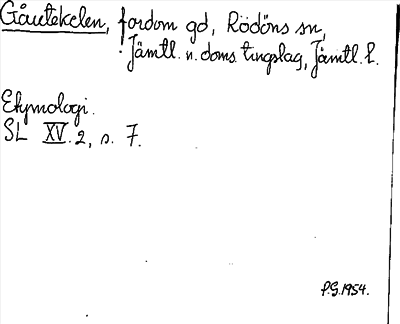 Gåutekelen, fordom gd, Rödöns sn,
Jämtl. n. doms. tingslag, Jämtl. l.
Etymologi.
SL XV. 2, s. 7.
P.G. 1954.